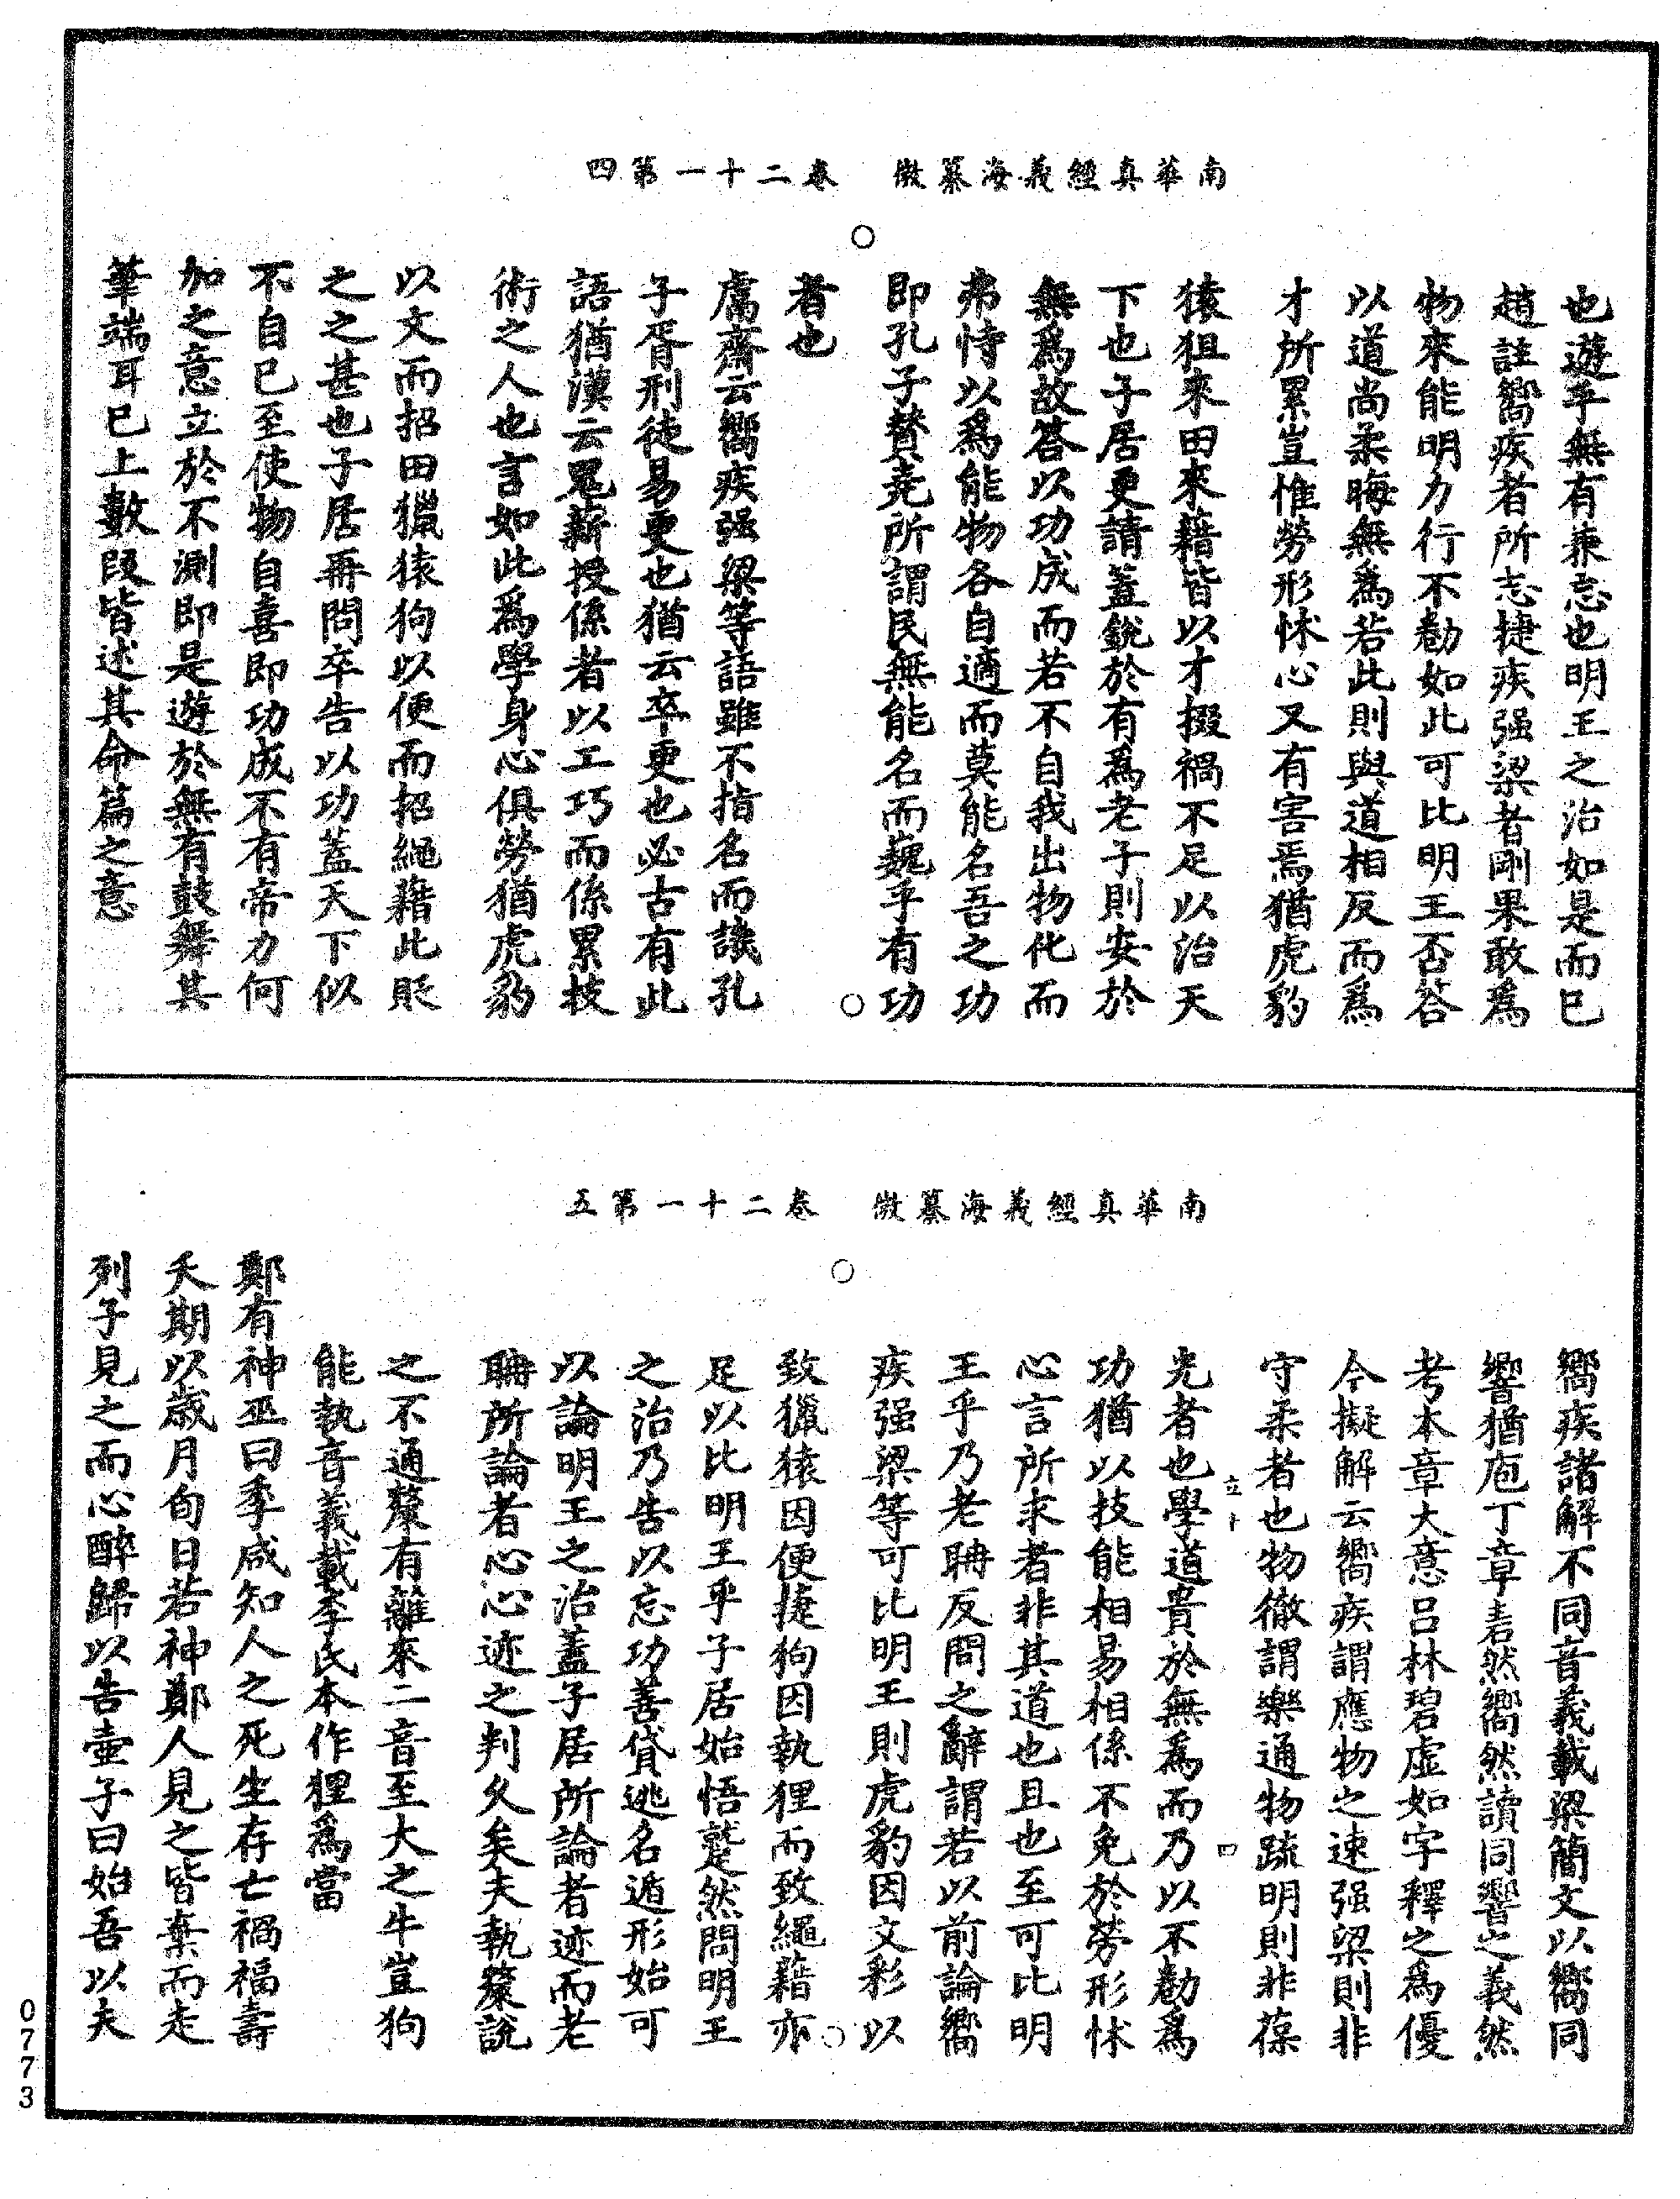 南華真經義海纂微　卷二十一第四
也遊乎無有兼忘也明王之治如是而已
趙註嚮疾者所志捷疾强梁者剛果敢爲
物來能明力行不勌如此可比明王否答
以道尚柔晦無爲若此則與道相反而爲
才所累豈惟勞形怵心又有害焉猶虎豹
猿狙來田來藉皆以才掇禍不足以治天
下也子居更請蓋銳於有爲老子則安於
無爲故答以功成而若不自我出物化而
弗恃以爲能物各自適而莫能名吾之功
即孔子賛堯所謂民無能名而巍乎有功
者也
鬳齋云嚮疾强梁等語雖不指名而譏孔
子胥刑徒易更也猶云卒更也必古有此
語猶漢云鬼薪授係者以工巧而係累技
術之人也言如此爲學身心俱勞猶虎豹
以文而招田獵猿狗以便而招繩藉此貶
之之甚也子居再問卒告以功蓋天下似
不自已至使物自喜即功成不有帝力何
加之意立於不測即是遊於無有鼓舞其
筆端耳已上數段皆述其命篇之意
南華真經義海纂微　卷二十一第五
嚮疾諸解不同音義載梁簡文以嚮同
響猶庖丁章砉然嚮然讀同響之義然
考本章大意呂林碧虛如字釋之爲優
今擬解云嚮疾謂應物之速强梁則非
守柔者也物徹謂樂通物疏明則非葆
光者也學道貴於無爲而乃以不勌爲
功猶以技能相易相係不免於勞形怵
心言所求者非其道也且也至可比明
王乎乃老聃反問之辭謂若以前論嚮
疾强梁等可比明王則虎豹因文彩以
致獵猿因便捷狗因執狸而致繩藉亦
足以比明王乎子居始悟蹵然問明王
之治乃告以忘功善貸逃名遁形始可
以論明王之治蓋子居所論者迹而老
聃所論者心心迹之判久矣夫執斄說
之不通斄有離來二音至大之牛豈狗
能執音義載李氏本作狸爲當
鄭有神巫曰季咸知人之死生存亡禍福壽
夭期以歲月旬日若神鄭人見之皆棄而走
列子見之而心醉歸以告壺子曰始吾以夫
0773